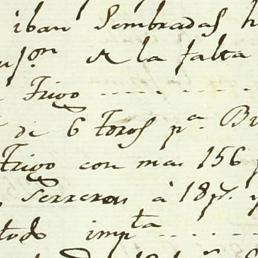 iban sembradas h
on. A la falta
Trigo
de 6 toros pa. Bu
Trigo con mas 156 p
Terreros à 18ps. y
todo impta